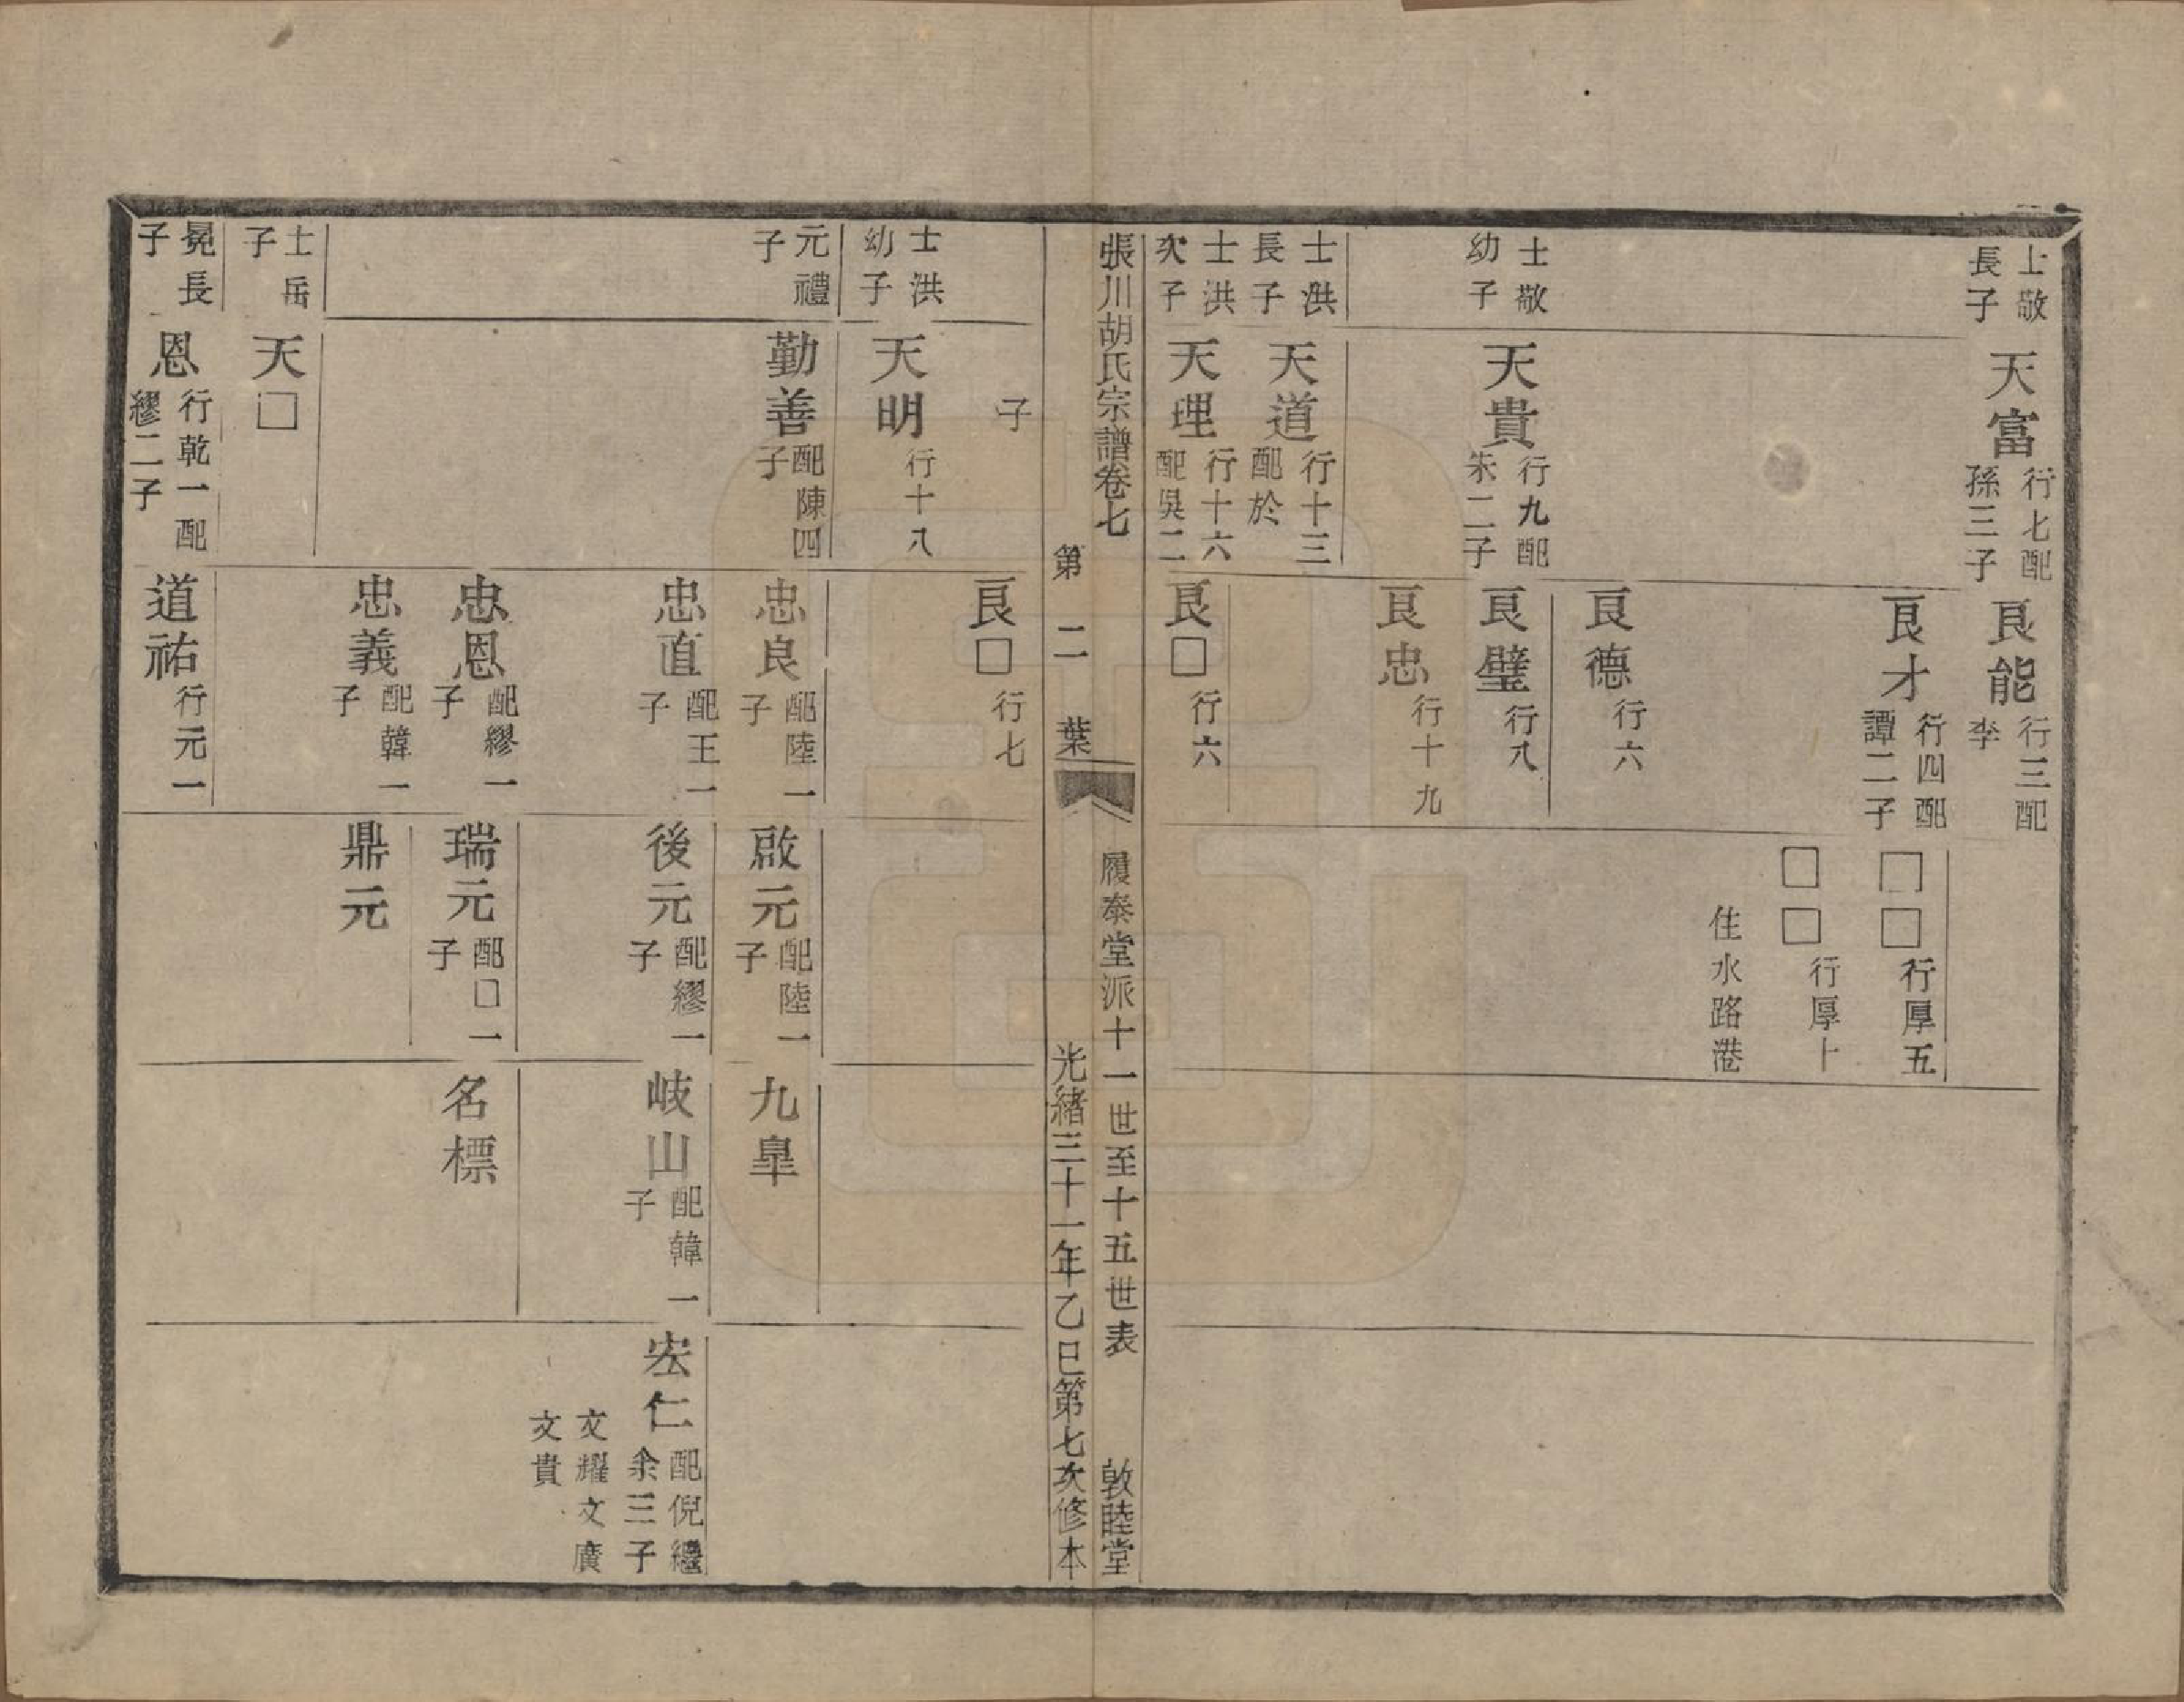 士敬
長子
天富
行七配
孫三子
良能
行三配
李
良才
行四配
譚二子
□□
行厚五
□□
行厚十
住水路港
良德
行六
士敬
幼子
天貴
行九配
朱二子
良璧
行八
良忠
行十九
士洪
長子
天道
行十三
配於
士洪
次子
天理
行十六
配吳二
良□
行六
張川胡氏宗譜卷七
履泰堂派十一世至十五世表
敦睦堂
第二葉
光緒三十一年乙巳第七次修本
子
良□
行七
士洪
幼子
天明
行十八
元禮
子
勤善
配陳四
子
忠良
配陸一
子
啟元
配陸一
子
九皐
忠直
配王一
子
後元
配繆一
子
岐山
配韓一
子
宏仁
配倪繼
余三子
文耀文廣
文貴
忠恩
配繆一
子
瑞元
配□一
子
名標
忠義
配韓一
子
鼎元
士岳
子
天□
冕長
子
恩
行乾一配
繆二子
道祐
行元一